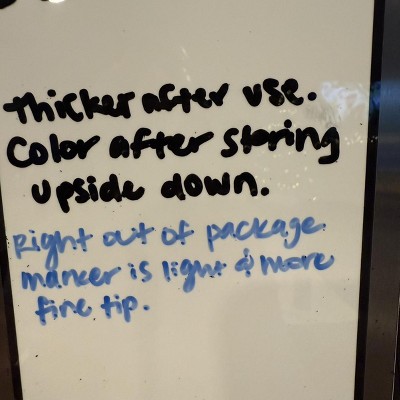 Thicker after use.
Color after storing
upside down.
Right out of package
marker is light & more
fine tip.